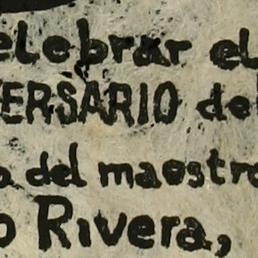 elebrar el
ERSARIO de
a del maestro
o Rivera,